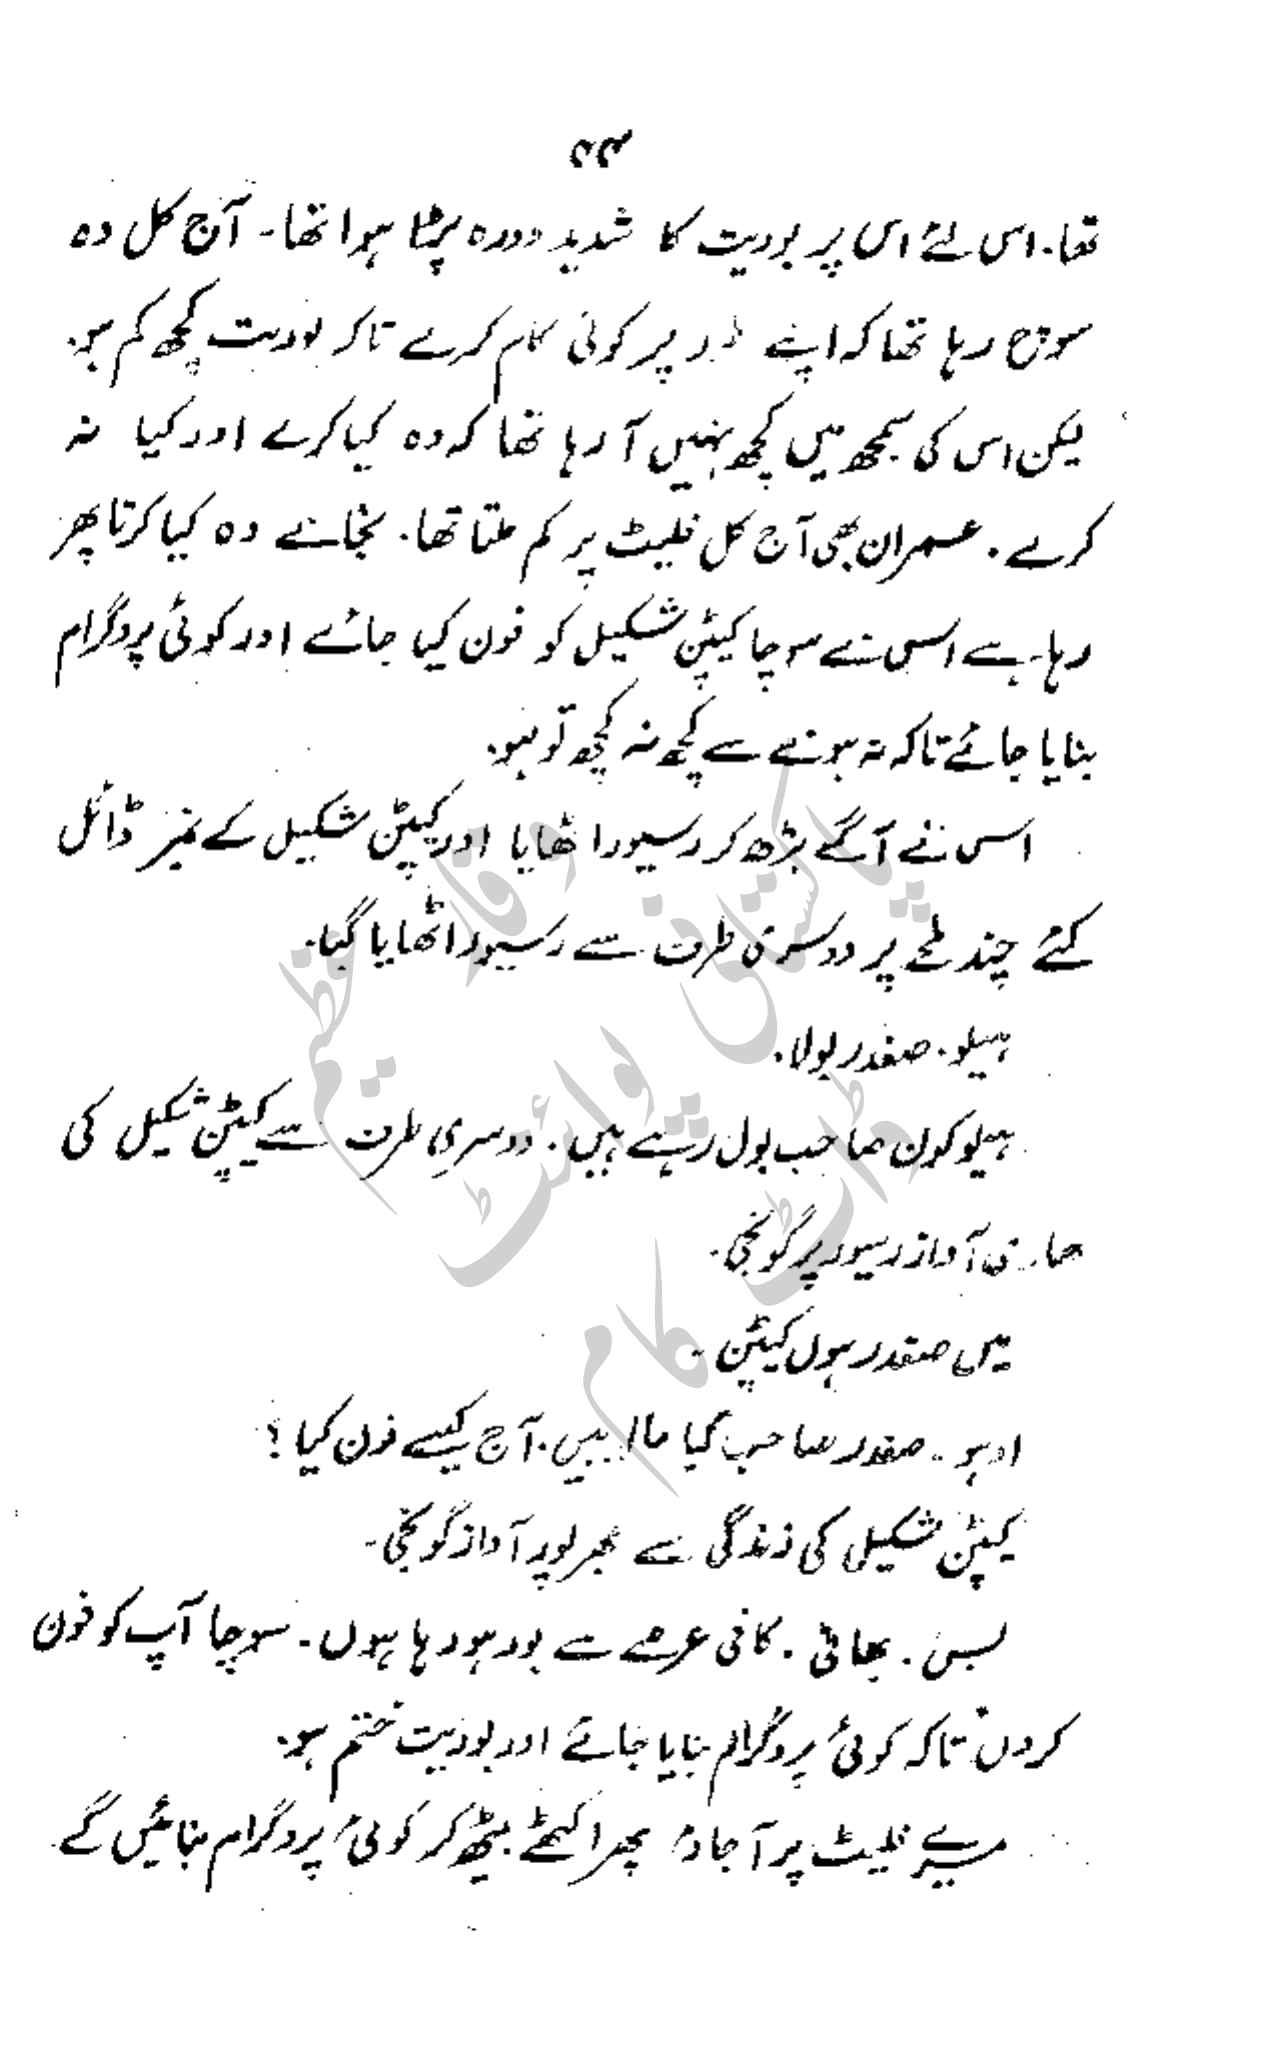 تھا۔ اس لئے اس پر بوریت کا شدید دورہ پڑا ہوا تھا۔ آج کل وہ
سوچ رہا تھا کہ اپنے طور پر کوئی کام کرے تاکہ بوریت کچھ کم ہو۔
لیکن اس کی سمجھ میں کچھ نہیں آ رہا تھا کہ وہ کیا کرے اور کیا نہ
کرے۔ عمران بھی آج کل فلیٹ پر کم ملتا تھا۔ نجانے وہ کیا کرتا پھر
رہا ہے اس نے سوچا کیپٹن شکیل کو فون کیا جائے اور کوئی پروگرام
بنایا جائے تاکہ نہ ہونے سے کچھ نہ کچھ تو ہو۔
اس نے آگے بڑھ کر رسیور اٹھایا اور کیپٹن شکیل کے نمبر ڈائل
کئے چند لمحے پر دوسری طرف سے رسیور اٹھایا گیا۔
ہیلو۔ صفدر بولا۔
ہیلو کون صاحب بول رہے ہیں۔ دوسری طرف سے کیپٹن شکیل کی
بھاری آواز رسیور پر گونجی۔
میں صفدر ہوں کیپٹن۔
اوہو۔ صفدر صاحب کیا حال ہیں۔ آج کیسے فون کیا؟
کیپٹن شکیل کی زندگی سے بھرپور آواز گونجی۔
بس۔ بھائی۔ کافی عرصے سے بور ہو رہا ہوں۔ سوچا آپ کو فون
کروں تاکہ کوئی پروگرام بنایا جائے اور بوریت ختم ہو۔
میرے فلیٹ پر آ جاؤ پھر اکٹھے بیٹھ کر کوئی پروگرام بنائیں گے
وقار عظیم
پاکستانی پوائنٹ
ڈاٹ کام